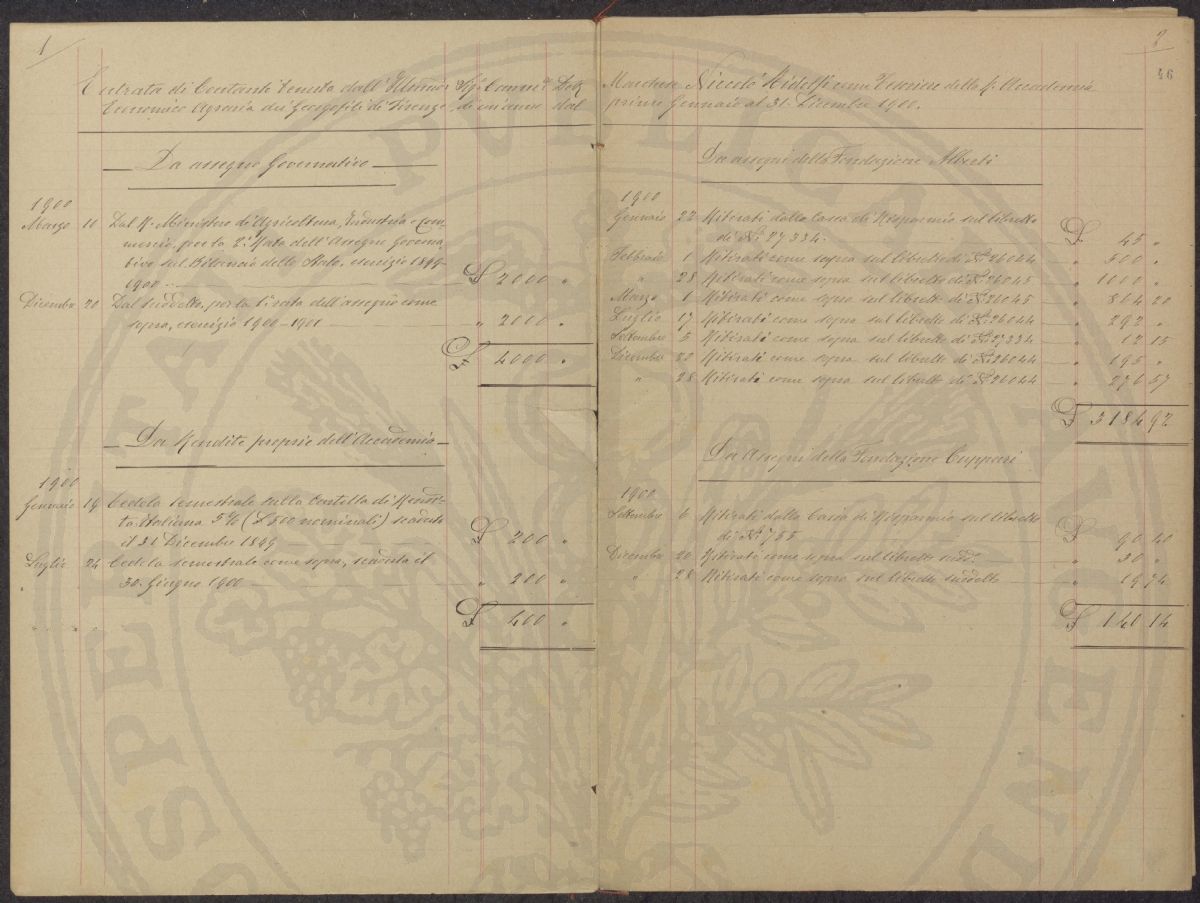 1
Entrata di Contante tenuta dall' Illmo Sig. Comm.
Economico Agraria dei Georgofili di Firenze, di un anno dal
Da assegno Governativo
1900
Marzo 10 Dal R. Ministero di Agricoltura, Industria e Com-
mercio, per la 2ª Rata dell'Assegno Governa-
tivo sul Bilancio dello Stato, esercizio 1899-
1900 £ 2000 "
Dicembre 20 Dal suddetto, per la 1ª rata dell'assegno come
sopra, esercizio 1900-1901 " 2000 "
£ 4000 "
Da Rendite proprie dell'Accademia
1900
Gennaio 19 Cedola semestrale sulla Cartella di Rendi-
ta Italiana 5% (£ 500 nominali) scaduta
il 31 Dicembre 1899 £ 200 "
Luglio 24 Cedola semestrale come sopra, scaduta il
30 Giugno 1900 " 200 "
£ 400 "
2
46
Marchese Niccolò Ridolfi come Tesoriere della R. Accademia
primo Gennaio al 31 Dicembre 1900.
Da assegni della Fondazione Alberti
1900
Gennaio 22 Ritirati dalla Cassa di Risparmio sul libretto
di N.º 27334. £ 45 "
Febbraio 1 Ritirati come sopra sul libretto di N.º 26044 " 500 "
" 28 Ritirati come sopra sul libretto di N.º 26045 " 1000 "
Marzo 1 Ritirati come sopra sul libretto di N.º 26045 " 864 20
Luglio 17 Ritirati come sopra sul libretto di N.º 26044 " 292 "
Settembre 5 Ritirati come sopra sul libretto di N.º 27334 " 12 15
Dicembre 20 Ritirati come sopra sul libretto di N.º 26044 " 195 "
" 28 Ritirati come sopra sul libretto di N.º 26044 " 276 57
£ 3184 92
Da Assegni della Fondazione Cuppari
1900
Settembre 6 Ritirati dalla Cassa di Risparmio sul libretto
di N.º 755 £ 90 40
Dicembre 20 Ritirati come sopra sul libretto sudd.º " 30 "
" 28 Ritirati come sopra sul libretto suddetto " 19 74
£ 140 14
PROSPERITATI PUBLICAE AUGENDAE